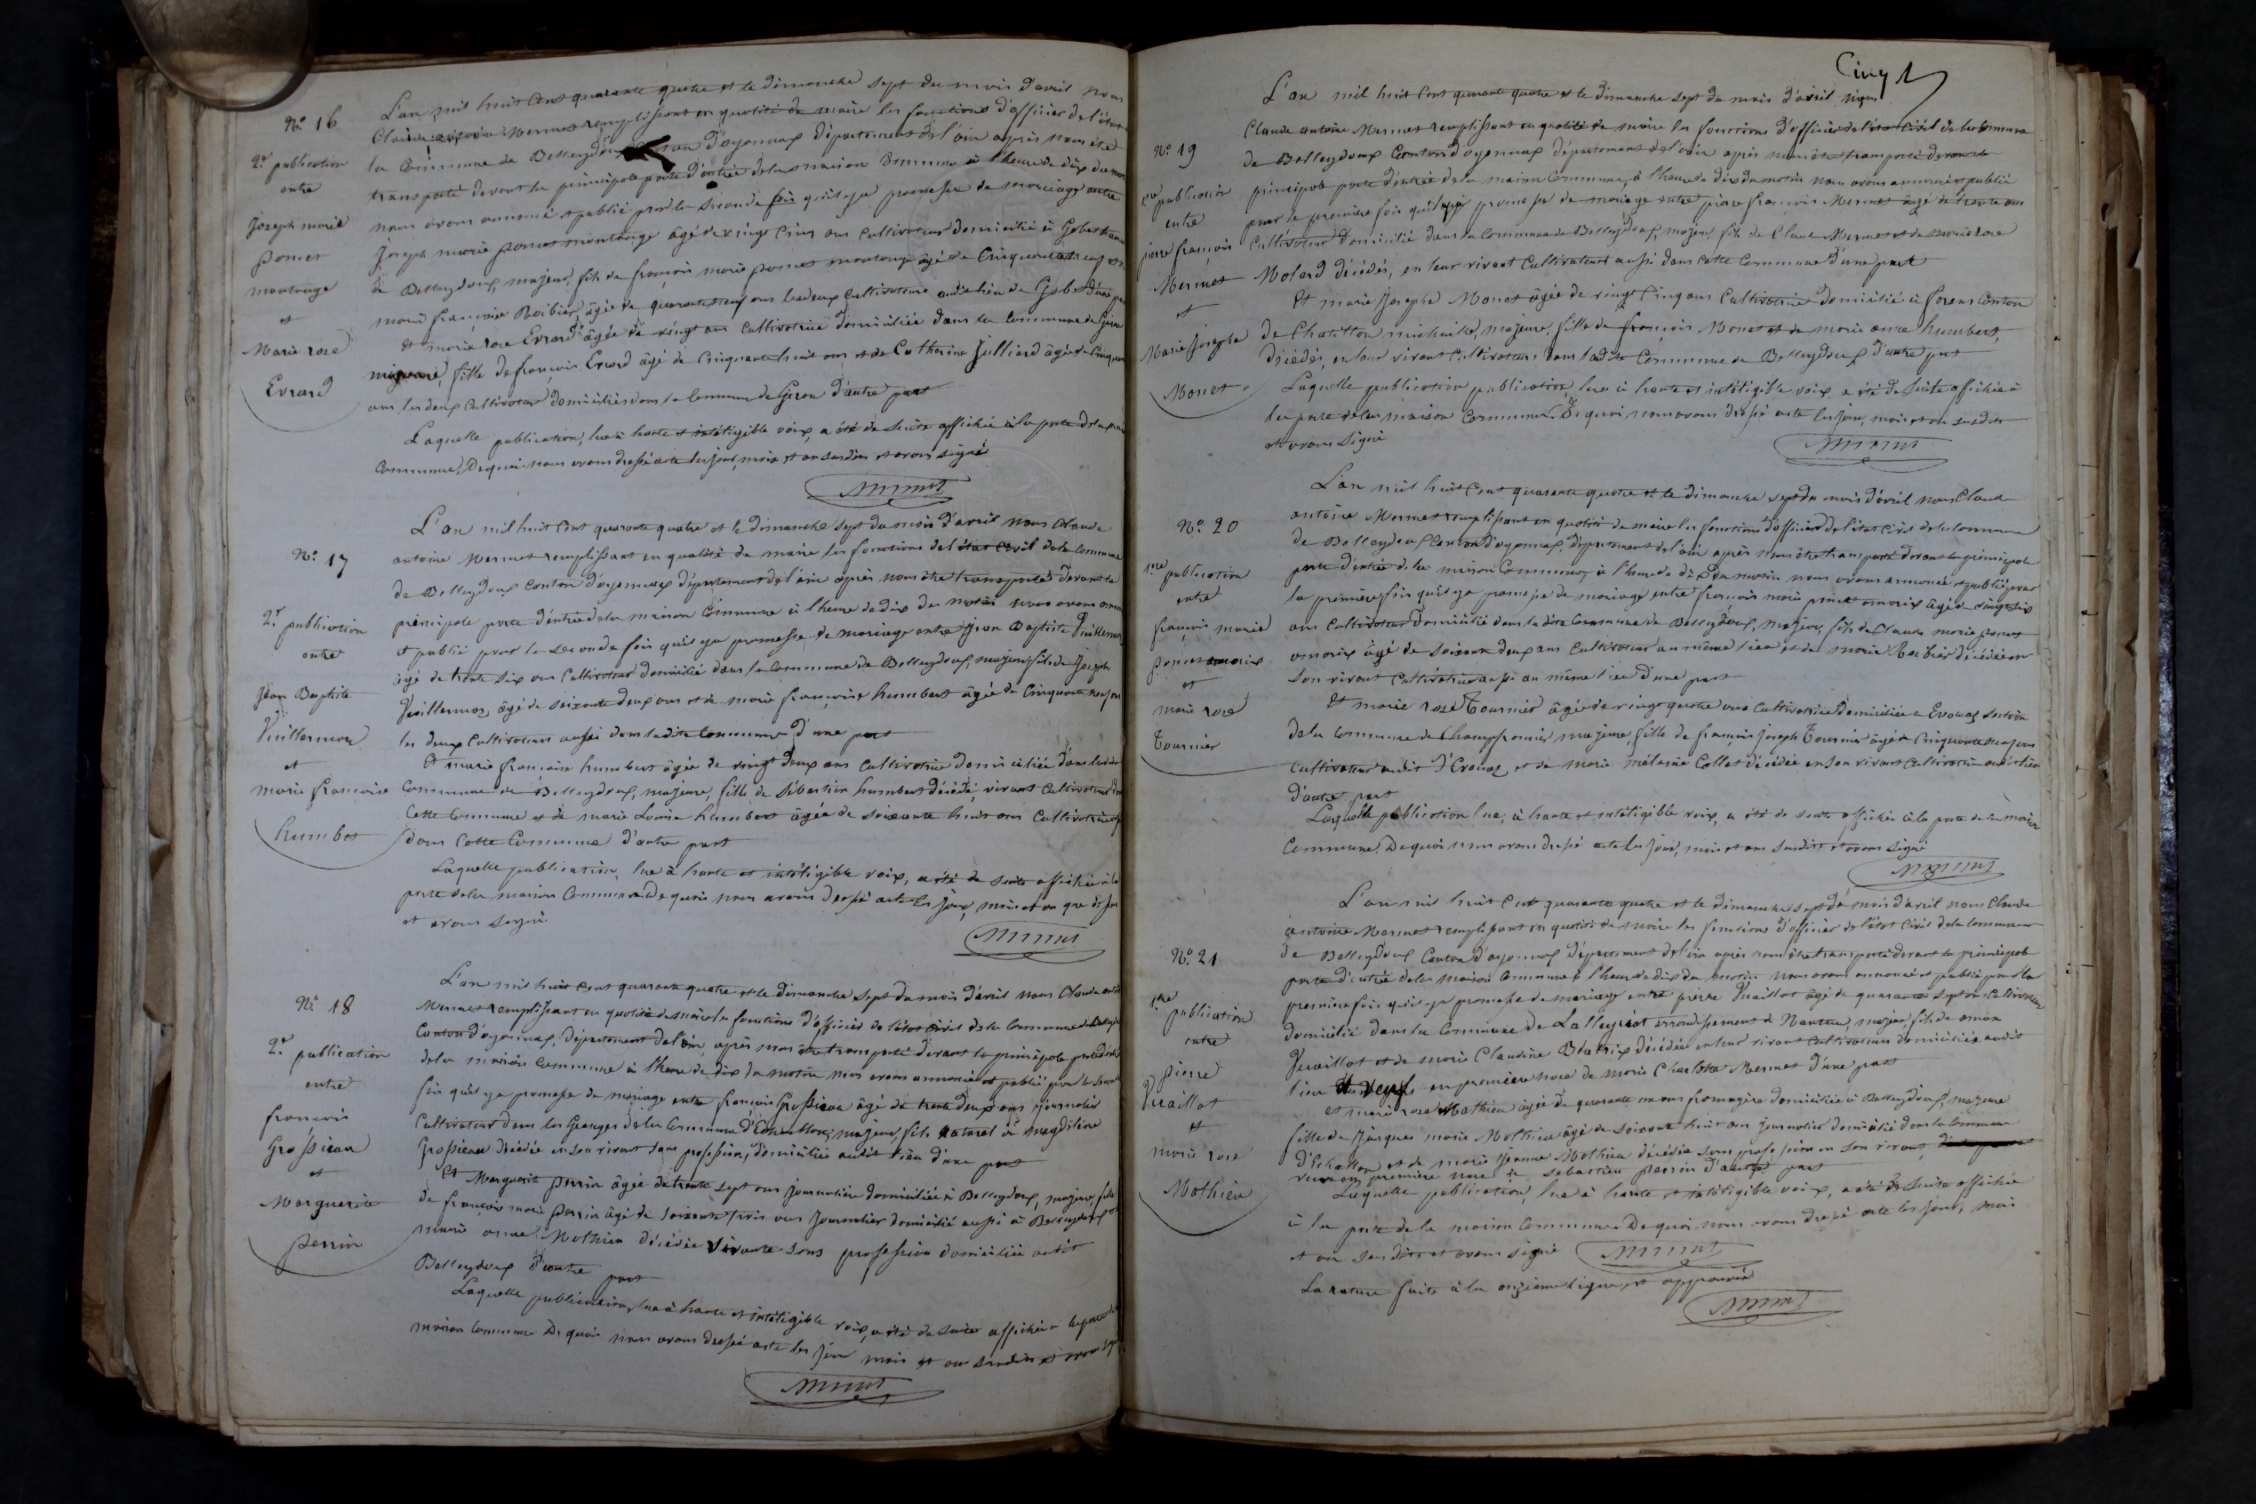 N.° 16
2.e publication
entre
Joseph marie
poncet
montange
et
Marie rose
Evrard
L'an mil huit Cent quarante quatre et le dimanche sept du mois d'avril nous
Claude antoine Mermet remplissant en qualité de maire les fonctions d'officier de l'état
la Commune de Belleydoux Canton d'oyonnax département de l'ain après nous être
transporté devant la principale porte d'entrée de la maison Commune à l'heure de dix du
nous avons annoncé et publié pour la seconde fois qu'il y a promesse de mariage entre
Joseph marie poncet montange âgé de vingt Cinq ans Cultivateur domicilié à Gobet
de Belleydoux, majeur, fils de françois marie poncet montange âgé de Cinquante
marie françoise Roibier, âgée de quarante ans les deux Cultivateurs audit lieu de Gobet d'une
et marie rose Evrard âgée de vingt ans Cultivatrice domiciliée dans la Commune de Giron
mineure, fille de françois Evrard âgé de Cinquante huit ans et de Catherine Julliard âgée de
ans les deux Cultivateurs domiciliés dans la Commune de Giron d'autre part
Laquelle publication, lue à haute et intéligible voix, a été de suite affichée à la porte de la
Commune, De quoi nous avons dressé acte les jour, mois et an susdits et avons signé
Mermet
N.° 17
2.e publication
entre
Jean Baptiste
Vuillermoz
et
marie françoise
humbert
L'an mil huit Cent quarante quatre et le dimanche sept du mois d'avril nous Claude
antoine Mermet remplissant en qualité de maire les fonctions de l'état Civil de la Commune
de Belleydoux Canton d'oyonnax département de l'ain après nous être transporté devant la
principale porte d'entrée de la maison Commune à l'heure de dix du matin nous avons
et publié pour la seconde fois qu'il y a promesse de mariage entre Jean Baptiste Vuillermoz
âgé de trente six ans Cultivateur domicilié dans la Commune de Belleydoux, majeur, fils de Joseph
Vuillermoz, âgé de soixante deux ans et de marie françoise humbert âgée de Cinquante
les deux Cultivateurs aussi dans ladite Commune d'une part
Et marie françoise humbert âgée de vingt deux ans Cultivatrice domiciliée dans
Commune de Belleydoux, majeure, fille de Sébastien humbert décédé, vivant Cultivateur
Cette Commune et de marie Louise humbert âgée de soixante huit ans Cultivatrice
dans Cette Commune d'autre part
Laquelle publication, lue à haute et intéligible voix, a été de suite affichée à la
porte de la maison Commune De quoi nous avons dressé acte les jour, mois et an que
et avons signé
Mermet
N.° 18
2.e publication
entre
françois
Grossiean
et
Marguerite
perrin
L'an mil huit Cent quarante quatre et le dimanche sept du mois d'avril nous Claude
Mermet remplissant en qualité de maire les fonctions d'officier de l'état Civil de la Commune de
Canton d'oyonnax, département de l'ain, après nous être transporté devant la principale porte
de la maison Commune à l'heure de dix du matin nous avons annoncé et publié pour la
fois qu'il y a promesse de mariage entre françois Grossiean âgé de trente deux ans journalier
Cultivateur dans les Granges de la Commune d'Echallon, majeur, fils naturel de magdeleine
Grossiean décédée en son vivant sans profession, domiciliée audit lieu d'une part
Et Marguerite perrin âgée de trente sept ans journalière domiciliée à Belleydoux, majeure, fille
de françois marie perrin âgé de soixante trois ans journalier domicilié aussi à Belleydoux
marie anne Mathieu décédée vivante sans profession domiciliée audit
Belleydoux d'autre part
Laquelle publication, lue à haute et intéligible voix, a été de suite affichée à la porte
maison Commune De quoi nous avons dressé acte les jour mois et an susdits et avons
Mermet
Cinq
N.° 19
1re publication
entre
pierre françois
Mermet
et
Marie Josephe
Monet
L'an mil huit Cent quarante quatre et le dimanche sept du mois d'avril, nous
Claude antoine Mermet remplissant en qualité de maire les fonctions d'officier de l'état Civil de la Commune
de Belleydoux Canton d'oyonnax département de l'ain après nous être transporté devant la
principale porte d'entrée de la maison Commune, à l'heure de dix du matin nous avons annoncé et publié
pour la première fois qu'il y a promesse de mariage entre pierre françois Mermet âgé de trente ans
Cultivateur domicilié dans la Commune de Belleydoux, majeur, fils de Claude Mermet et de marie rose
Molard décédés, en leur vivant Cultivateurs aussi dans Cette Commune d'une part
Et marie Josephe Monet âgée de vingt Cinq ans Cultivatrice domiciliée à forens Canton
de Chatillon michaille, majeure, fille de françois Monet et de marie anne humbert,
décédés, en leur vivant Cultivateurs dans ladite Commune de Belleydoux d'autre part
Laquelle publication publication, lue à haute et intéligible voix a été de suite affichée à
la porte de la maison Commune, De quoi nous avons dressé acte les jour, mois et an susdits
et avons signé
Mermet
N.° 20
1re publication
entre
françois marie
poncet
et
marie rose
Tournier
L'an mil huit Cent quarante quatre et le dimanche sept du mois d'avril nous Claude
antoine Mermet remplissant en qualité de maire les fonctions d'officier de l'état Civil de la Commune
de Belleydoux Canton d'oyonnax, département de l'ain après nous être transporté devant la principale
porte d'entrée de la maison Commune, à l'heure de dix du matin nous avons annoncé et publié pour
la première fois qu'il y a promesse de mariage entre françois marie poncet âgé de vingt six
ans Cultivateur domicilié dans la dite Commune de Belleydoux, majeur, fils de Claude marie poncet
âgé de soixante deux ans Cultivateur au même lieu et de marie décédée en
son vivant Cultivatrice aussi au même lieu d'une part
Et marie rose Tournier âgée de vingt quatre ans Cultivatrice domiciliée à Evouaz section
de la Commune de Champfromier majeure, fille de françois Joseph Tournier âgé de Cinquante
Cultivateur audit d'Evouaz et de marie mélanie Collet décédée en son vivant Cultivatrice audit lieu
d'autre part
Laquelle publication lue, à haute et intéligible voix, a été de suite affichée à la porte de la maison
Commune De quoi nous avons dressé acte les jour, mois et an susdits et avons signé
Mermet
N.° 21
1re publication
entre
pierre
Vuaillat
et
marie rose
Mathieu
L'an mil huit Cent quarante quatre et le dimanche sept du mois d'avril nous Claude
antoine Mermet remplissant en qualité de maire les fonctions d'officier de l'état Civil de la Commune
de Belleydoux Canton d'oyonnax département de l'ain après nous être transporté devant la principale
porte d'entrée de la maison Commune à l'heure de dix du matin nous avons annoncé et publié pour la
première fois qu'il y a promesse de mariage entre pierre Vuaillat âgé de quarante sept ans Cultivateur
domicilié dans la Commune de Lalleyriat arrondissement de Nantua, majeur, fils de
Vuaillat et de marie Claudine décédés en leur vivant Cultivateurs domiciliés audit
lieu et veuf en première noce de marie Charlotte Mermet d'une part
et marie rose Mathieu âgée de quarante ans fromagère domiciliée à Belleydoux, majeure
fille de Jacques marie Mathieu âgé de soixante huit ans journalier domicilié dans la Commune
d'Echallon et de marie Jeanne Mathieu décédée sans profession en son vivant,
veuve en première noce de sébastien perrin d'autre part
Laquelle publication, lue à haute et intéligible voix, a été de suite affichée
à la porte de la maison Commune De quoi nous avons dressé acte les jour, mois
et an susdits et avons signé Mermet
La rature faite à la onzième ligne, est approuvée
Mermet